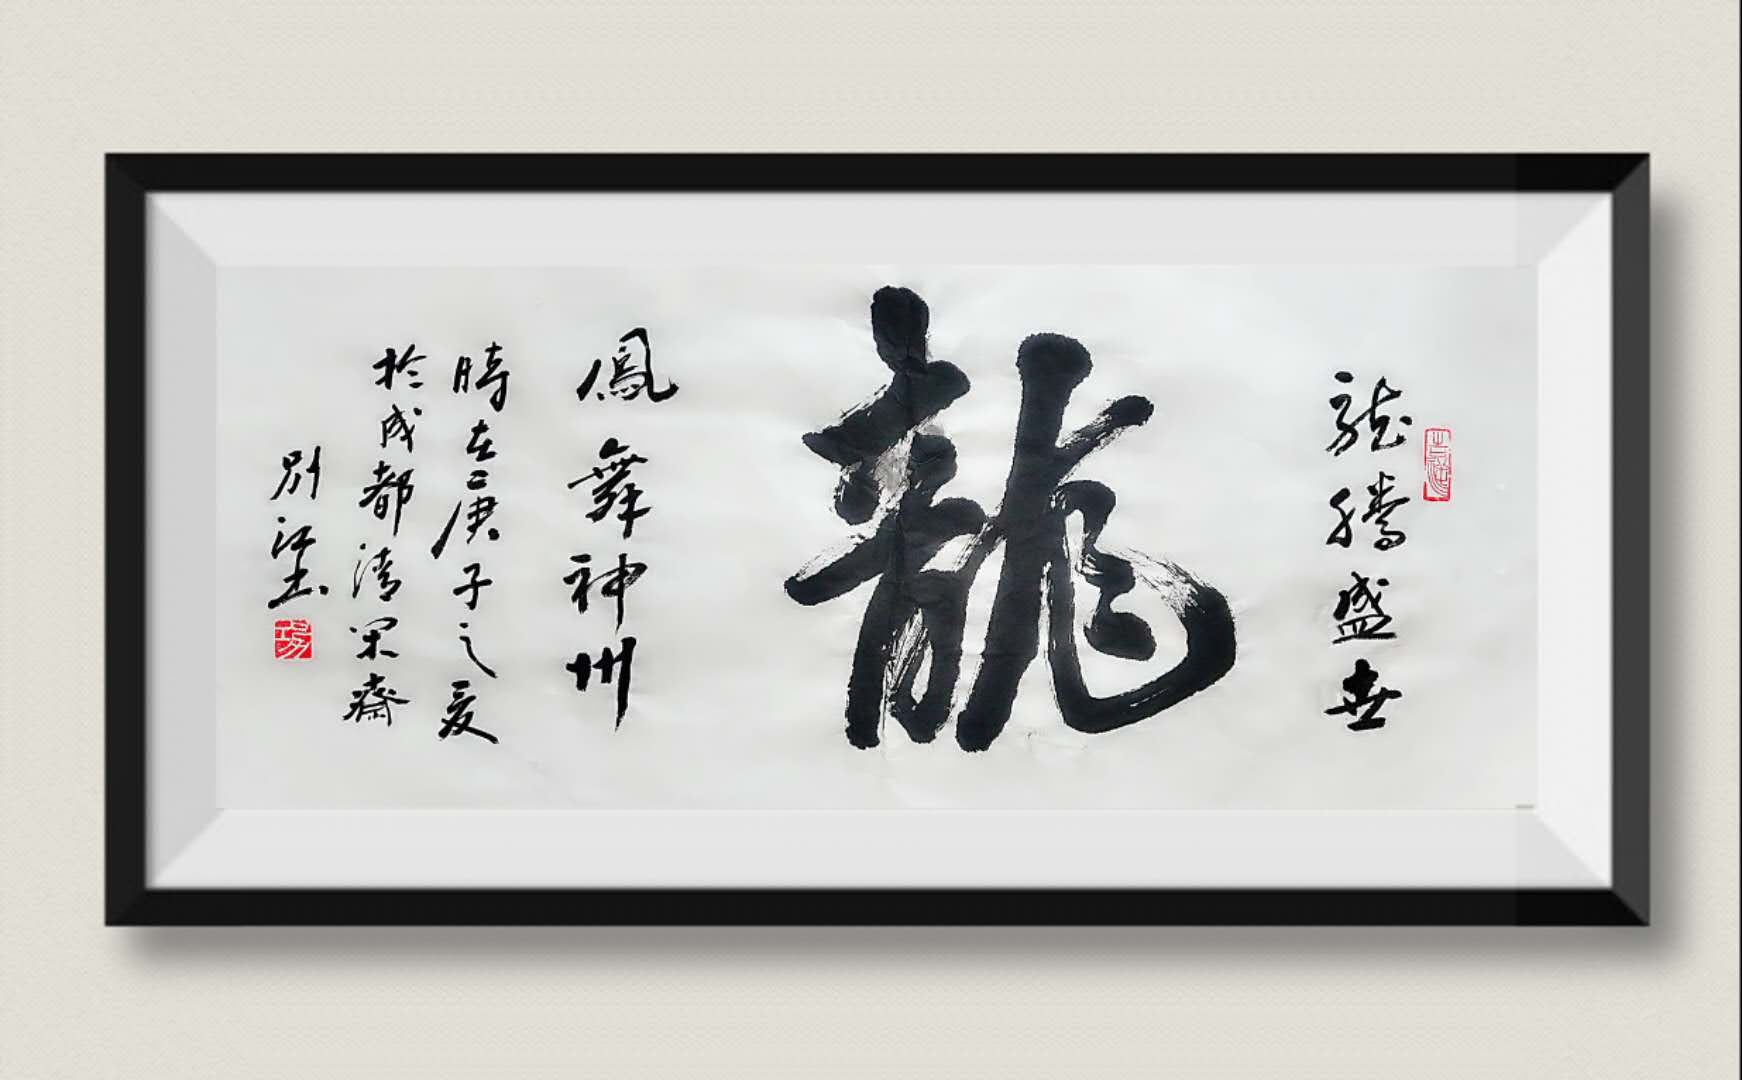 龍騰盛世
龍
鳳舞神州
時在庚子之夏
於成都清閑齋
別江书